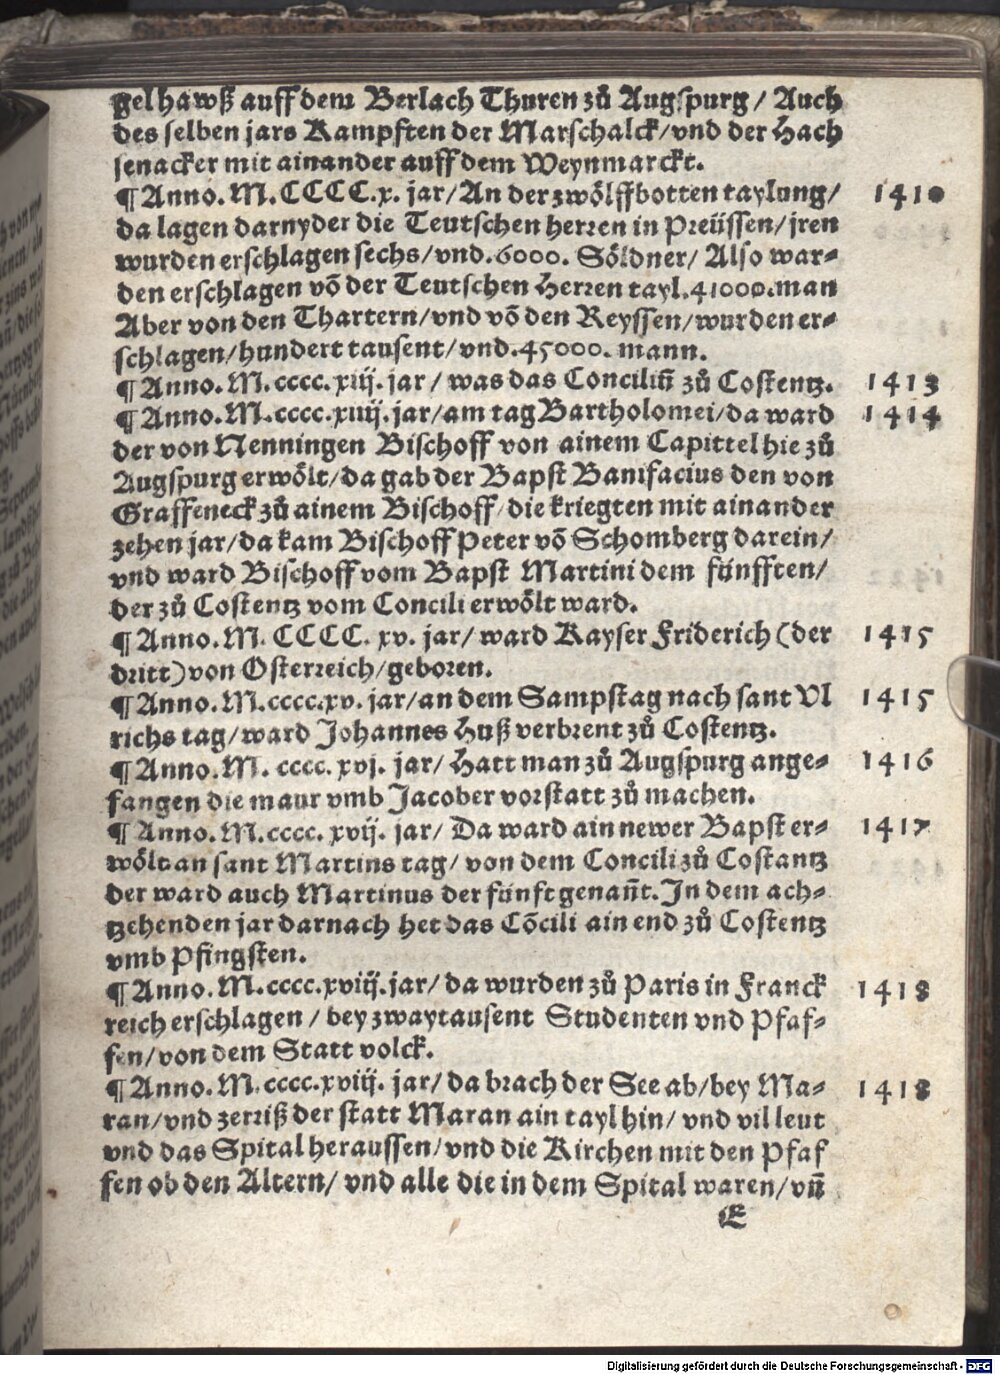 gelhawß auff dem Berlach Thuren zů Augspurg / Auch
des selben jars Kampften der Marschalck/vnd der Hach
senacker mit ainander auff dem Weynmarckt.
¶ Anno. M. CCCC.x. jar/An der zwölffbotten taylung/ 1410
da lagen darnyder die Teutschen herren in Preüssen/jren
wurden erschlagen sechs/vnd.6000. Söldner/ Also war-
den erschlagen võ der Teutschen Herren tayl.41000.man
Aber von den Thartern/vnd võ den Reyssen/wurden er-
schlagen/hundert tausent/vnd.45000. mann.
¶ Anno. M.cccc.xiij. jar/ was das Conciliũ zů Costentz. 1413
¶ Anno.M.cccc.xiiij.jar/am tag Bartholomei/da ward 1414
der von Nenningen Bischoff von ainem Capittel hie zů
Augspurg erwölt/da gab der Bapst Banifacius den von
Graffeneck zů ainem Bischoff/die kriegten mit ainander
zehen jar/da kam Bischoff Peter võ Schomberg darein/
vnd ward Bischoff vom Bapst Martini dem fünfften/
der zů Costentz vom Concili erwölt ward.
¶ Anno. M. CCCC. xv. jar/ ward Kayser Friderich (der 1415
dritt) von Osterreich/geboren.
¶ Anno. M.cccc.xv. jar/an dem Sampstag nach sant Vl 1415
richs tag/ward Johannes Huß verbrent zů Costentz.
¶ Anno. M. cccc. xvj. jar/ Hatt man zů Augspurg ange- 1416
fangen die maur vmb Jacober vorstatt zů machen.
¶ Anno. M.cccc. xvij. jar/ Da ward ain newer Bapst er- 1417
wölt an sant Martins tag/ von dem Concili zů Costantz
der ward auch Martinus der fünft genañt. In dem ach-
tzehenden jar darnach het das Cõcili ain end zů Costentz
vmb Pfingsten.
¶ Anno. M.cccc.xviij.jar/ da wurden zů Paris in Franck 1418
reich erschlagen / bey zwaytausent Studenten vnd Pfaf-
fen/von dem Statt volck.
¶ Anno. M.cccc.xviij. jar/ da brach der See ab/bey Ma- 1418
ran/vnd zerriß der statt Maran ain tayl hin/ vnd vil leut
vnd das Spital heraussen/vnd die Kirchen mit den Pfaf
fen ob den Altern/ vnd alle die in dem Spital waren/vñ
E
Digitalisierung gefördert durch die Deutsche Forschungsgemeinschaft - DFG